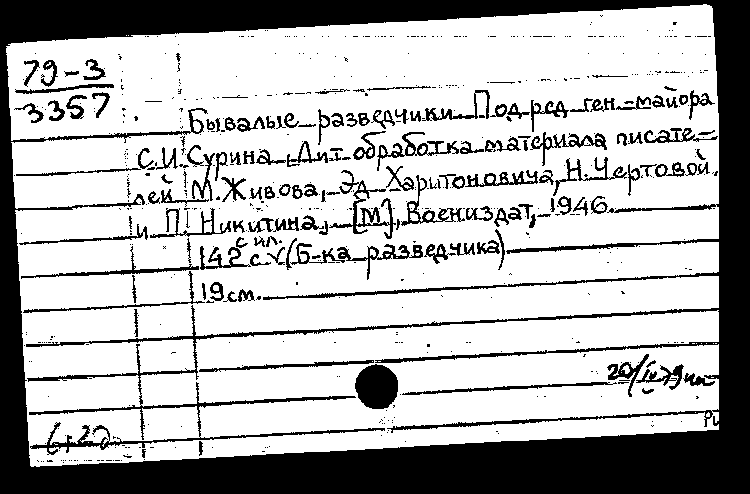 79-3
3357
Бывалые разведчики. Под ред. ген.-майора
С.И. Сурина. Лит. обработка материала писате-
лей М. Живова, Эд. Харитоновича, Н. Чертовой
и П. Никитина. [М], Воениздат, 1946.
с ил.
142 с √ (Б-ка разведчика)
19 см.
20/IV 79